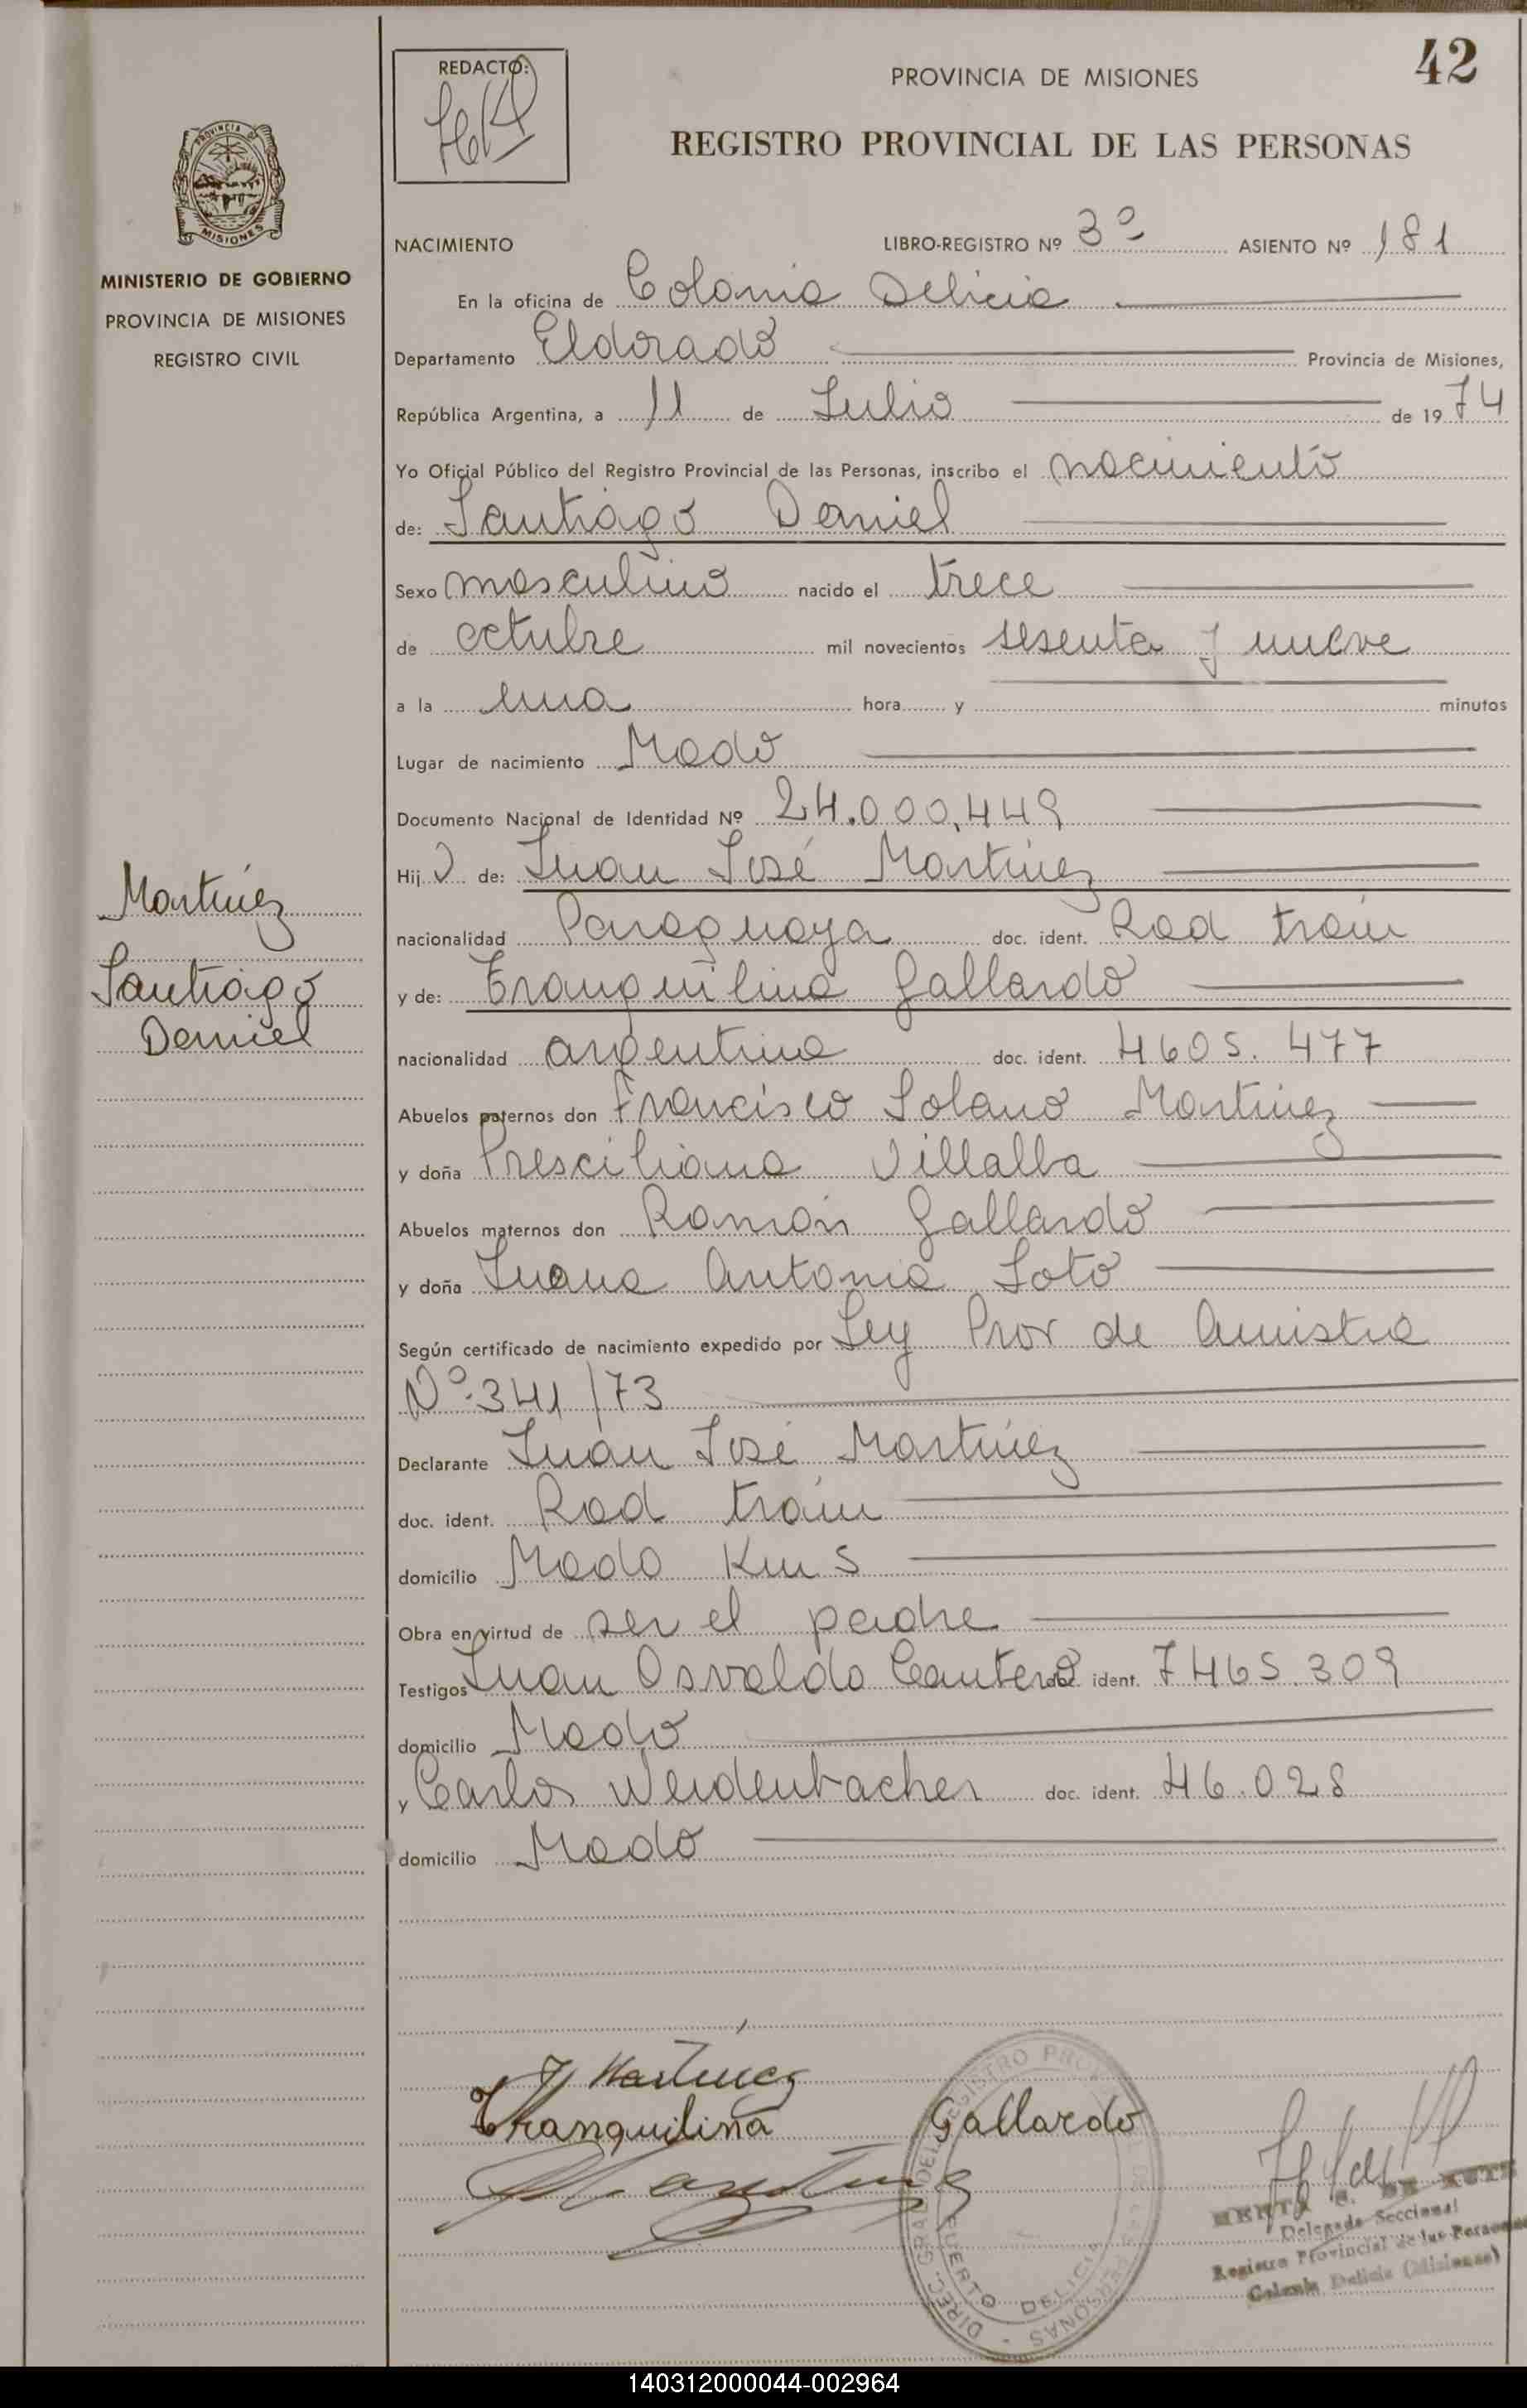 42
REDACTO:
PROVINCIA DE MISIONES
REGISTRO PROVINCIAL DE LAS PERSONAS
PROVINCIA DE
MISIONES
MINISTERIO DE GOBIERNO
PROVINCIA DE MISIONES
REGISTRO CIVIL
NACIMIENTO LIBRO-REGISTRO Nº 3º ASIENTO Nº 181
En la oficina de Colonia Delicia
Departamento Eldorado Provincia de Misiones,
República Argentina, a 11 de Julio de 1974
Yo Oficial Público del Registro Provincial de las Personas, inscribo el nacimiento
de: Santiago Daniel
Sexo masculino nacido el trece
de octubre mil novecientos sesenta y nueve
a la una hora y minutos
Lugar de nacimiento Mado
Documento Nacional de Identidad Nº 24.000.449
Hijo de: Juan José Martinez
nacionalidad Paraguaya doc. ident. Rad trám
y de: Tranquilina Gallardo
nacionalidad argentina doc. ident. 4605.477
Abuelos paternos don Francisco Solano Martinez
y doña Presciliana Villalba
Abuelos maternos don Ramón Gallardo
y doña Juana Antonia Soto
Según certificado de nacimiento expedido por Ley Prov de Amistia
Nº 341/73
Declarante Juan José Martinez
doc. ident. Rad trám
domicilio Mado Km 5
Obra en virtud de ser el padre
Testigos Juan Osvaldo Cantero doc. ident. 7465.309
domicilio Mado
y Carlos Weidenbacher doc. ident. 46.028
domicilio Mado
Martinez
Santiago
Daniel
J Martinez
Tranquilina Gallardo
DIREC. GRAL. DEL REGISTRO PROVINCIAL DE LAS PERSONAS
PUERTO DELICIA
Delegada Seccional
Registro Provincial de las Personas
Colonia Delicia (Misiones)
140312000044-002964